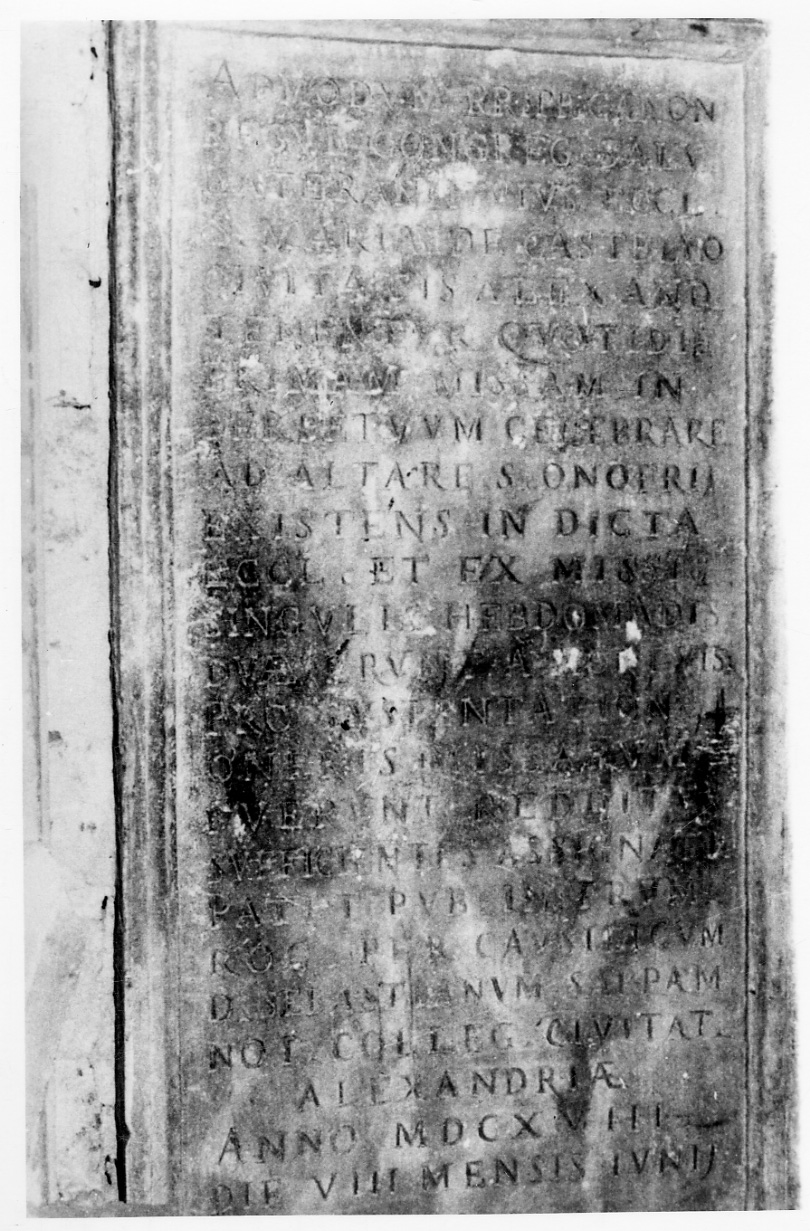 ADMODVM RR. PP. CANON
REGVL. CONGREG. SALV.
LATERAN. HVIVS ECCL.
S. MARIÆ DE CASTELLO
CIVITATIS ALEXAND.
TENENTVR QVOTIDIE
PRIMAM MISSAM IN
PERPETVVM CELEBRARE
AD ALTARE S. ONOFRIJ
EXISTENS IN DICTA
ECCL. ET EX MISSIS
SINGVLIS HEBDOMADIS
DVÆ
PRO SVSTENTATION
ONERIS MISSARVM
FVERVNT REDDITVS
SVFFICIENTES ASSIGNATI
PATET PVB. INSTRVM.
ROG. PER CAVSIDICVM
D. SEBASTIANVM
NOT. COLLEG. CIVITAT.
ALEXANDRIÆ
ANNO MDCXVIIII
DIE VIII MENSIS IVNIJ